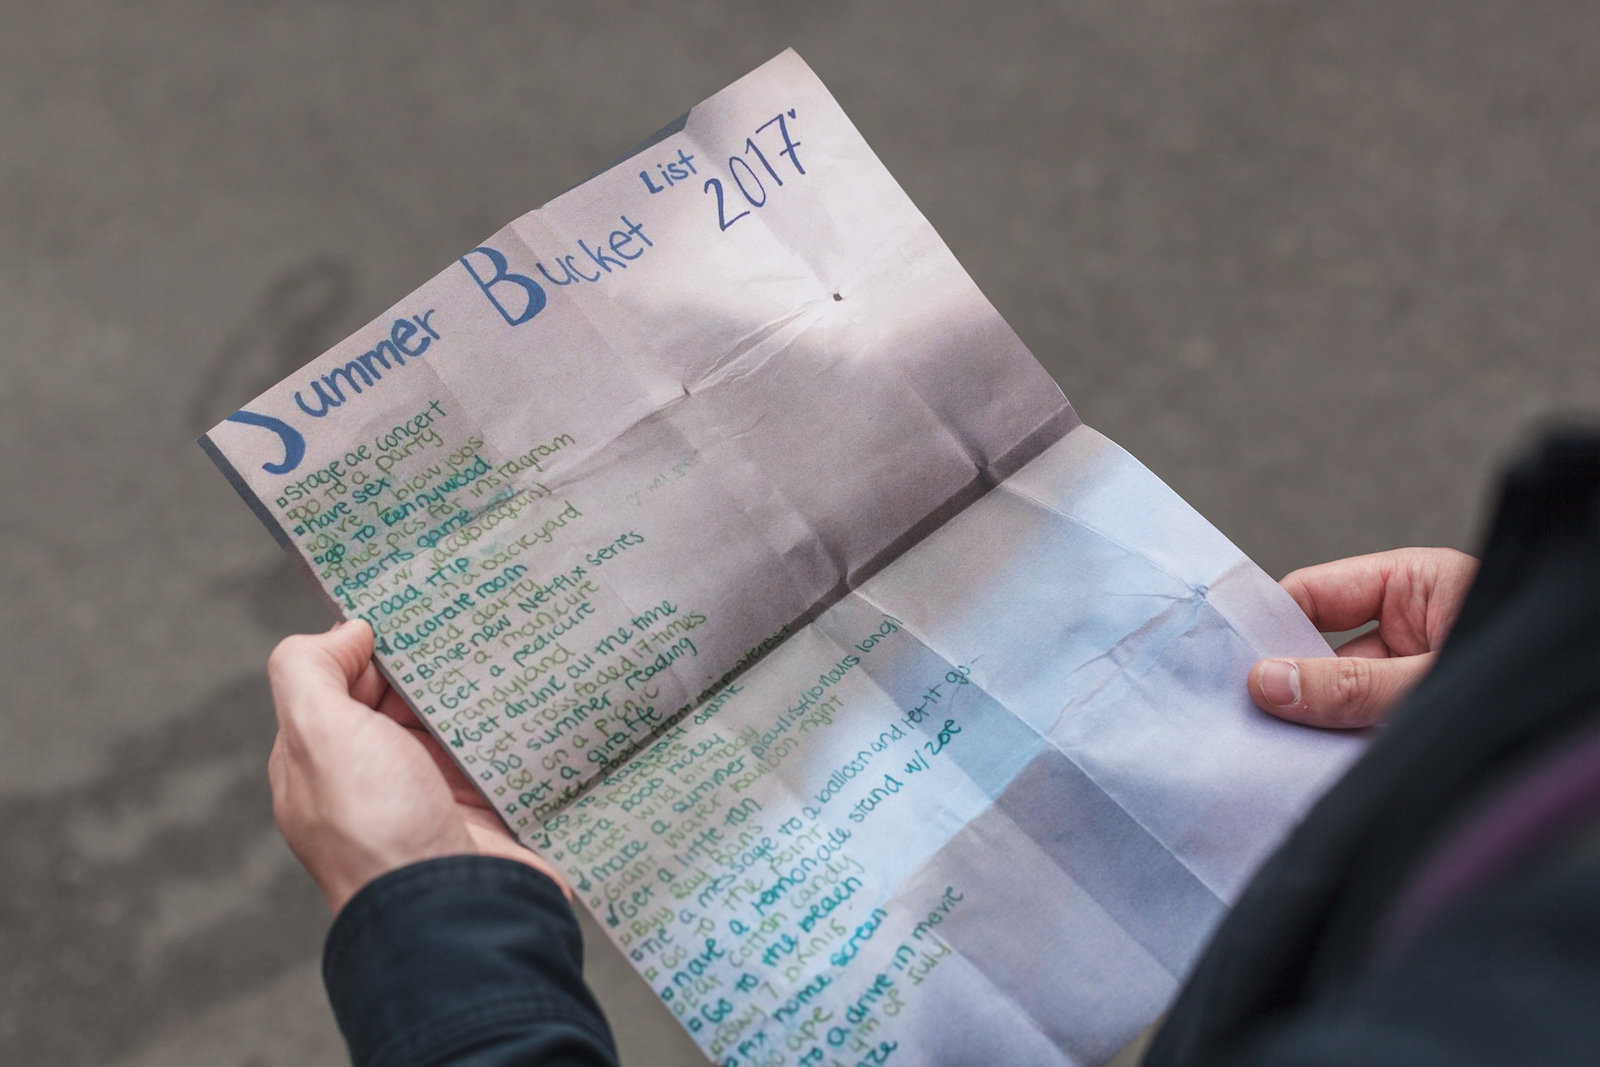 Summer Bucket List 2017
stage ae concert
go to a party
have sex
give 2 blow jobs
go to Kennywood
pics of instagram
sports game
road trip
camp in a backyard
decorate room
read
Binge new Netflix series
Get a manicure
Get a pedicure
candyland
Get drunk all the time
Get cross faded 17 times
Do summer reading
Go on a picnic
pet a giraffe
make food from pinterest
Go
use
Get a
super wild birthday
make a summer playlist (10 hours long)
Giant water balloon fight
Get a little tan
Buy Ray Bans
Tie a message to a balloon and let it go
Go to the point
have a lemonade stand w/ zoe
eat cotton candy
Go to the beach
Buy 7
Fix home screen
Go ape
to a drive in movie
4th of July